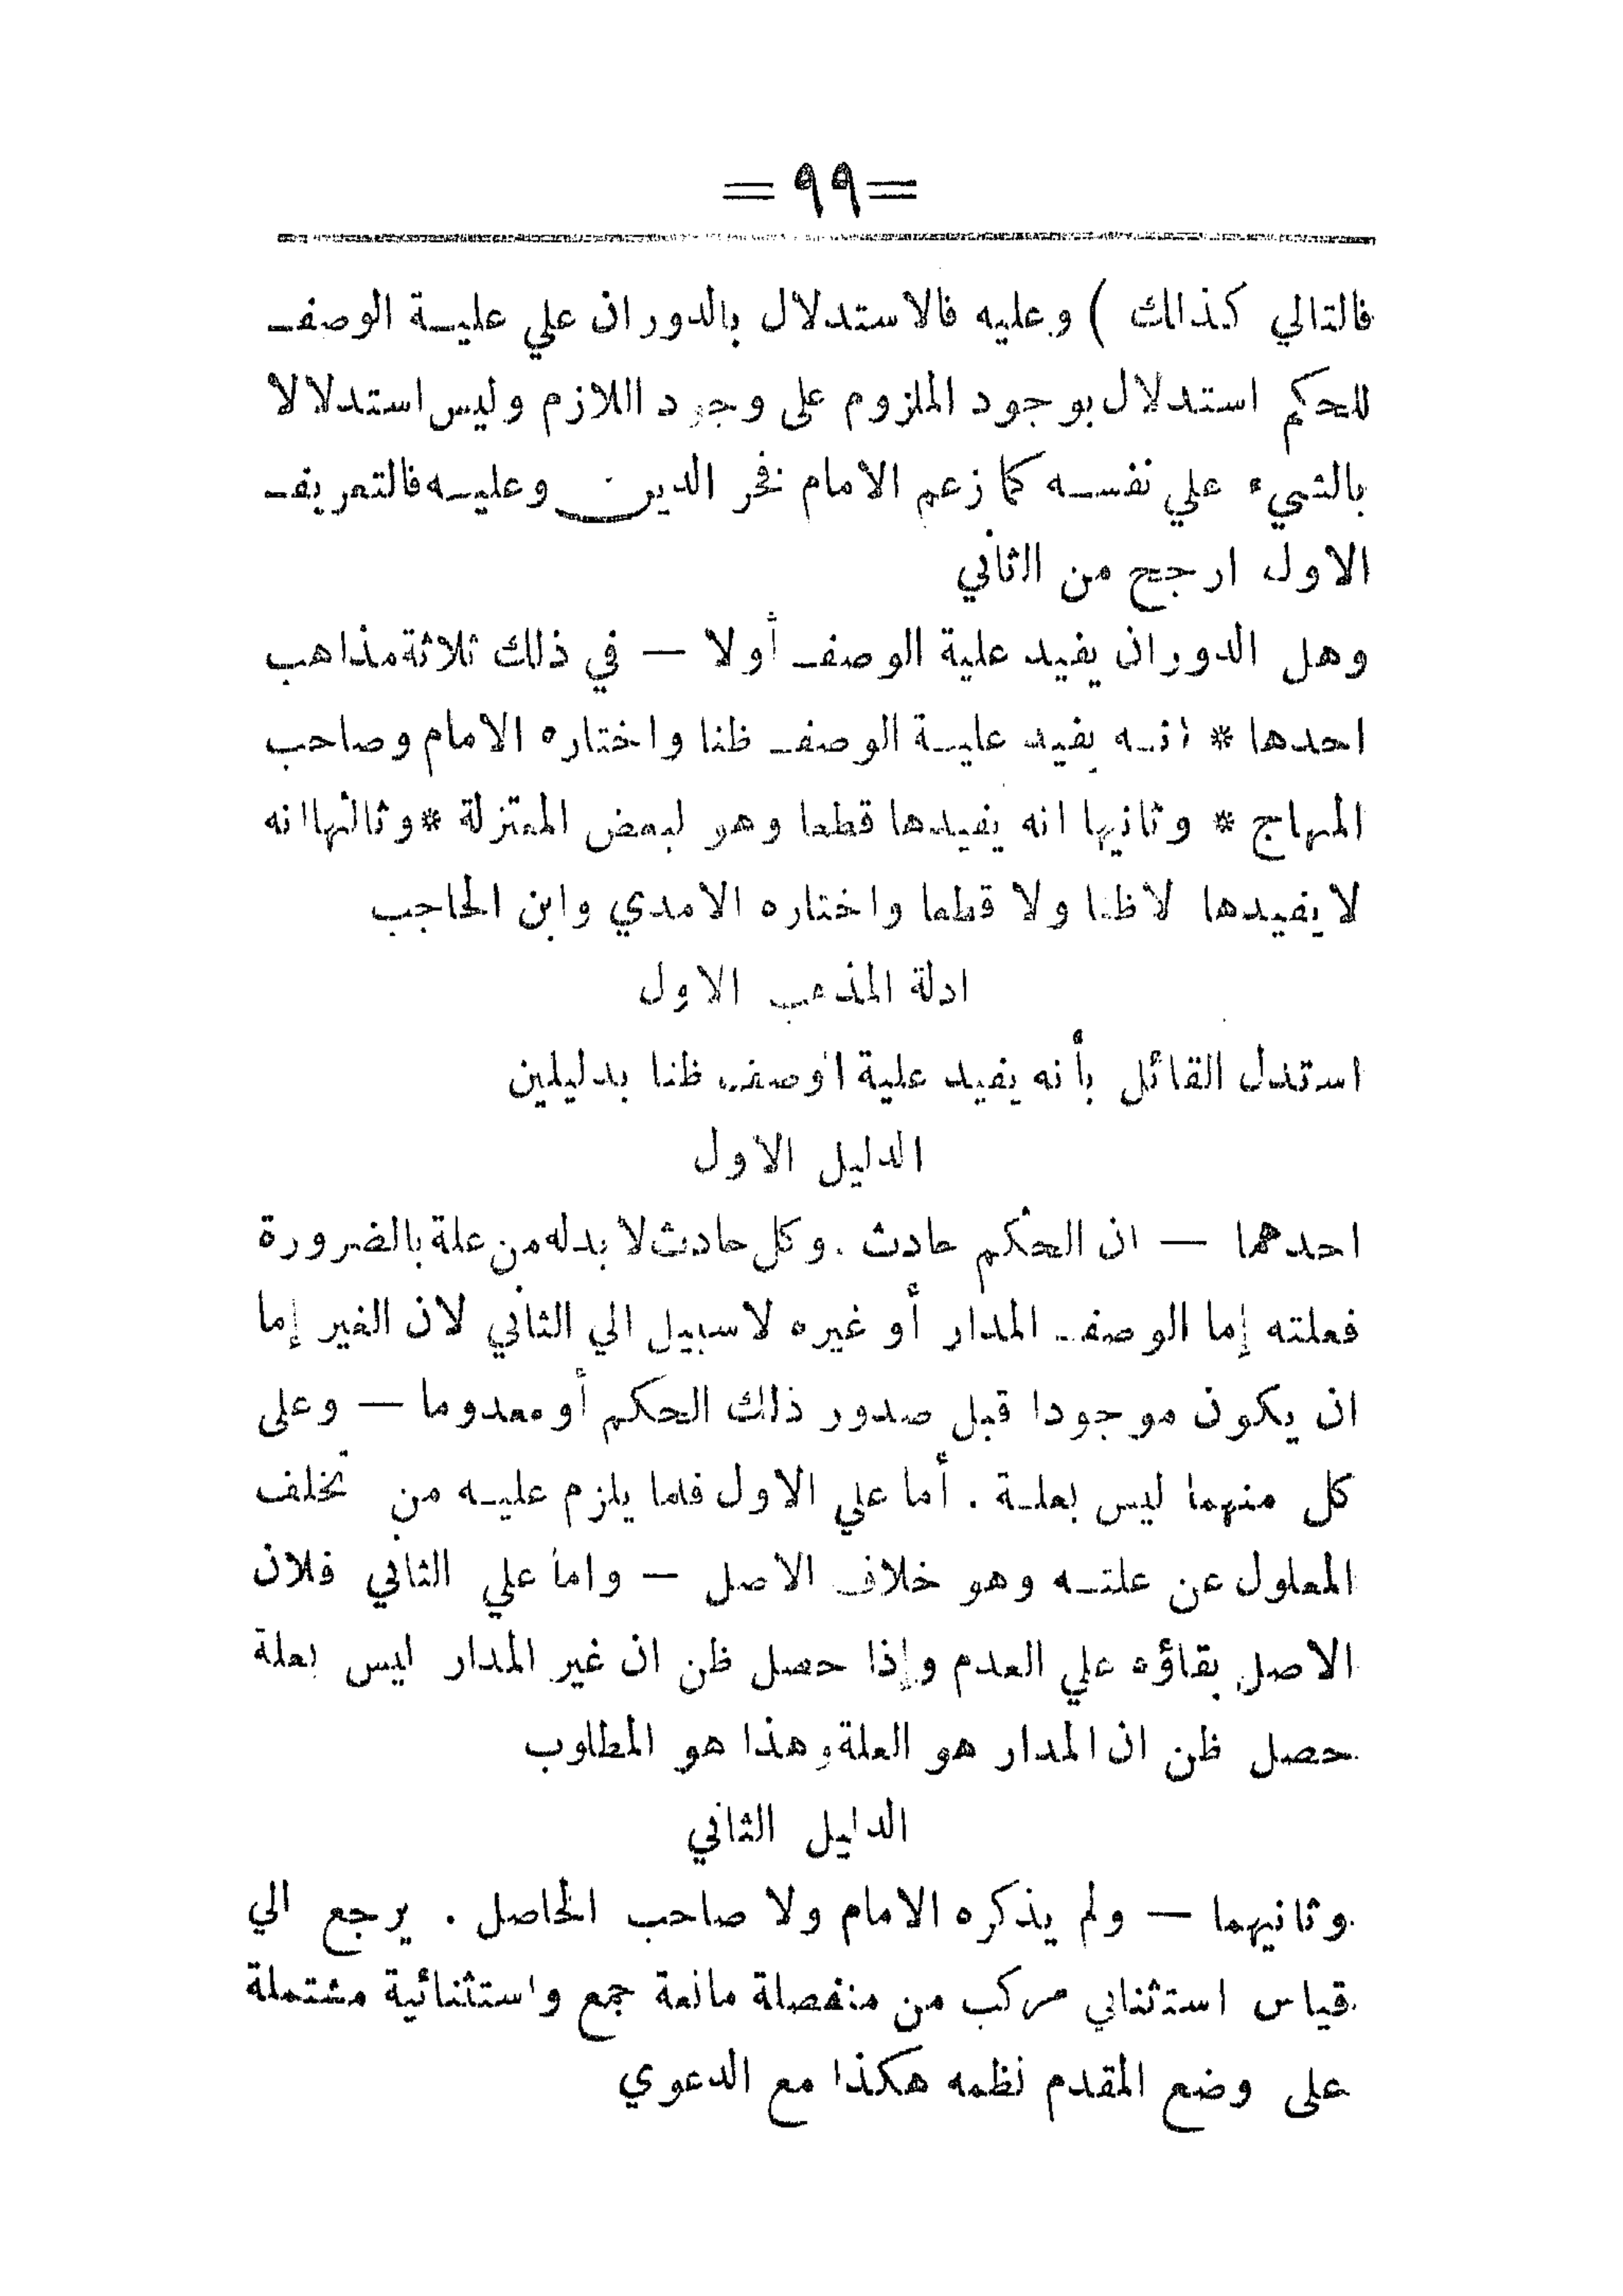 = ٩٩ =
فالتالي كذالك ) وعليه فالاستدلال بالدوران علي عليـة الوصف
للحكم استدلال بوجود الملزوم على وجود اللازم وليس استدلالا
بالشيء علي نفسـه كما زعم الامام فخر الدين وعليـه فالتعريف
الاول ارجح من الثاني
وهل الدوران يفيد علية الوصف أولا — في ذلك ثلاثة مذاهب
احدها * انـه يفيد عليـة الوصف ظنا واختاره الامام وصاحب
المنهاج * وثانيها انه يفيدها قطعا وهو لبعض المعتزلة * وثالثها انه
لا يفيدها لا ظنا ولا قطعا واختاره الامدي وابن الحاجب
ادلة المذهب الاول
استدل القائل بأنه يفيد علية الوصف ظنا بدليلين
الدليل الاول
احدهما — ان الحكم حادث . وكل حادث لا بد له من علة بالضرورة
فعلته إما الوصف المدار أو غيره لا سبيل الي الثاني لان الغير إما
ان يكون موجودا قبل صدور ذلك الحكم أو معدوما — وعلى
كل منهما ليس بعلـة . أما علي الاول فلما يلزم عليـه من تخلف
المعلول عن علتـه وهو خلاف الاصل — واما علي الثاني فلان
الاصل بقاؤه علي العدم وإذا حصل ظن ان غير المدار ليس بعلة
حصل ظن ان المدار هو العلة وهذا هو المطلوب
الدليل الثاني
وثانيهما — ولم يذكره الامام ولا صاحب الحاصل . يرجع الي
قياس استثنابي مركب من منفصلة مانعة جمع واستثنائية مشتملة
على وضع المقدم نظمه هكذا مع الدعوي